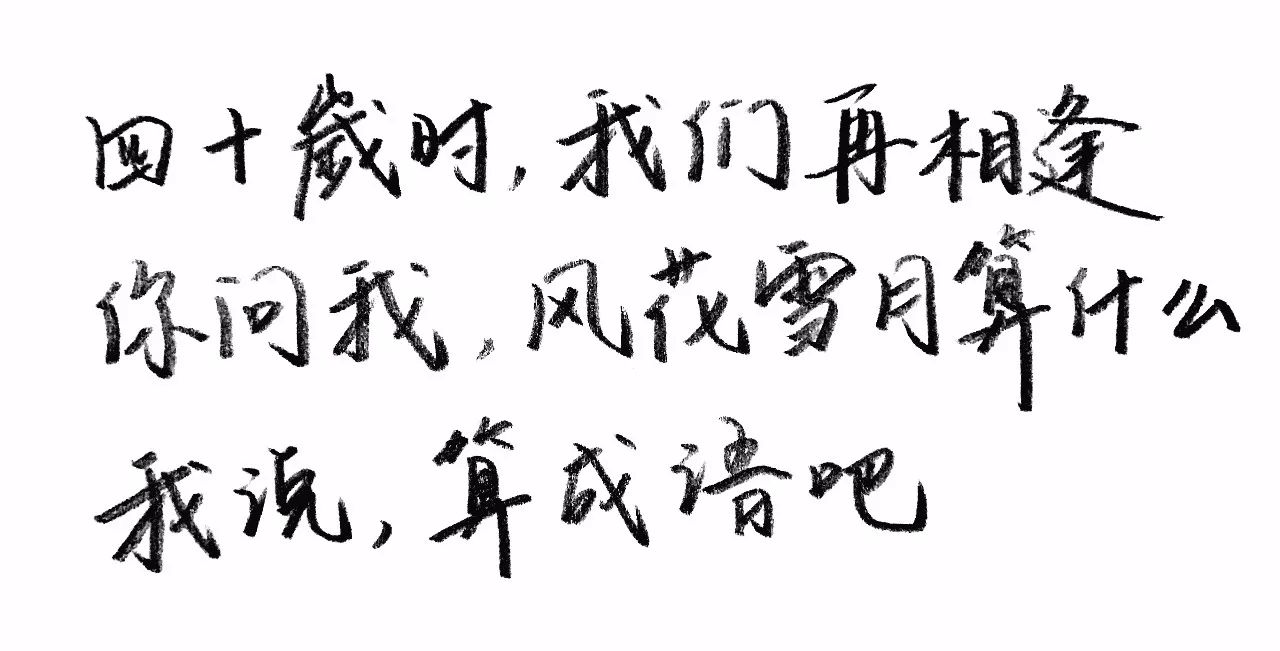 四十歲时,我们再相逢
你问我,风花雪月算什么
我说,算成语吧